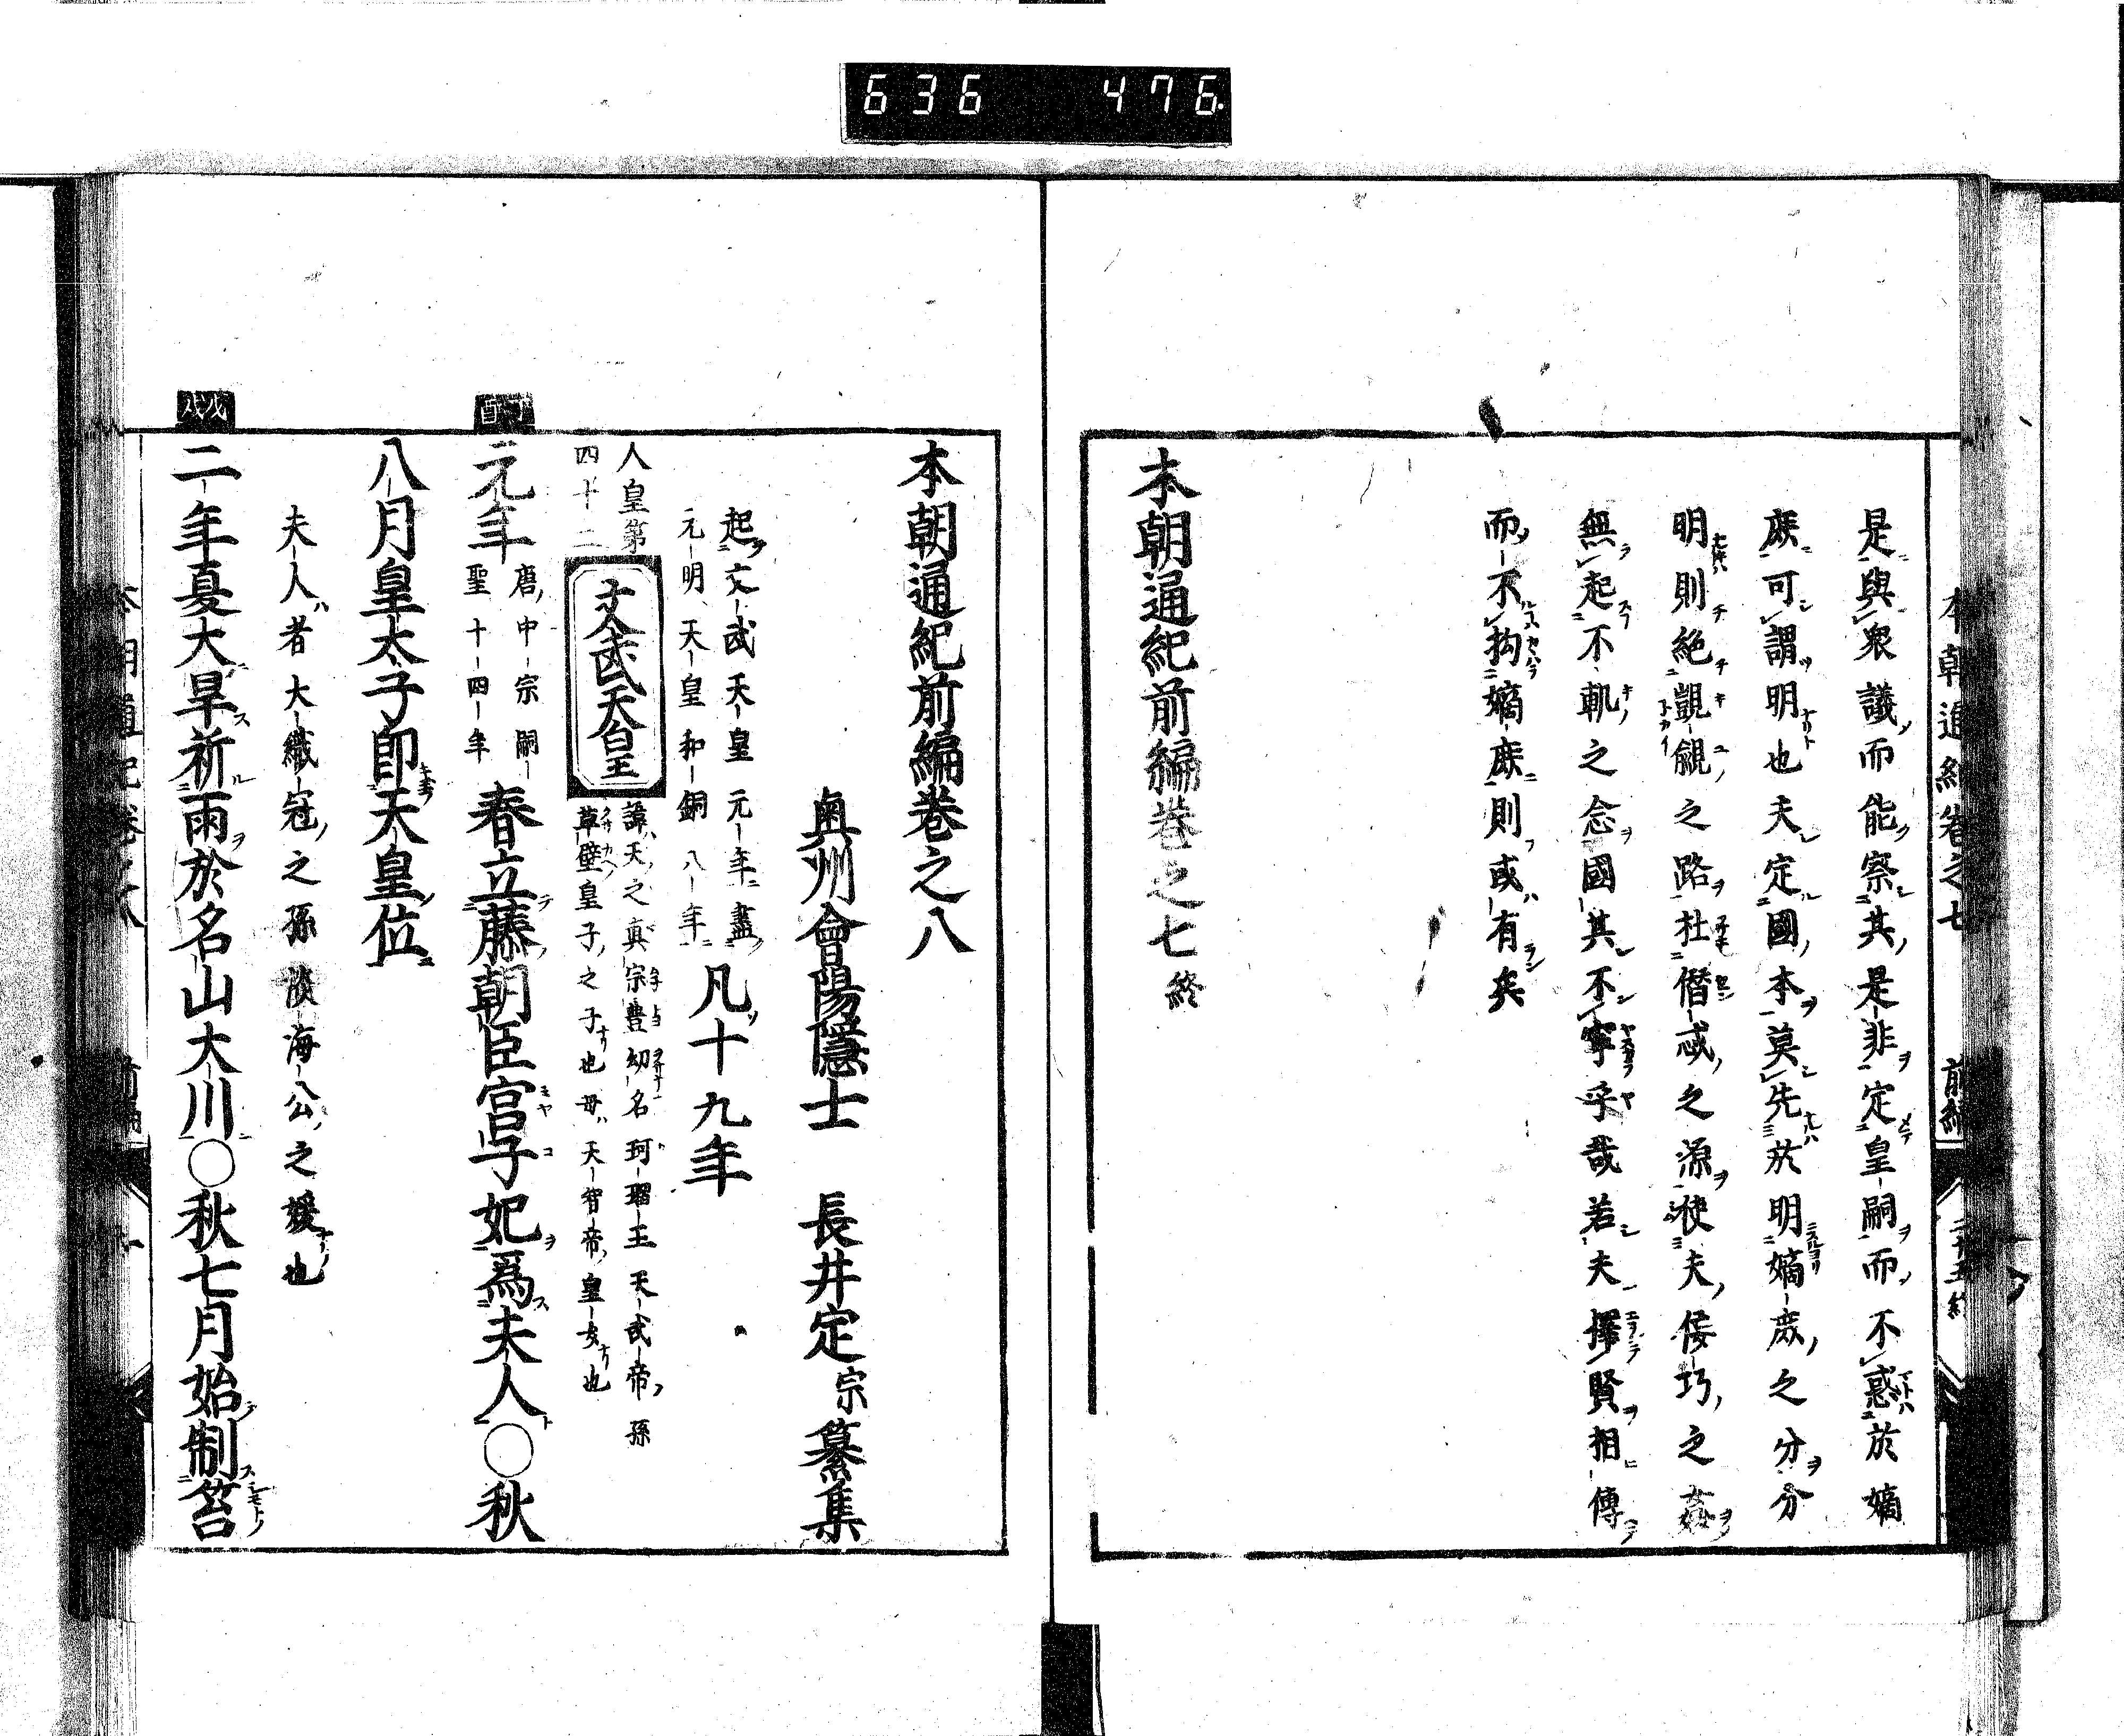 636 476.
本朝通紀卷之七 前編
是與衆議而能察其是非定皇嗣而不惑於嫡
庶可謂明也夫定國本莫先於明嫡庶之分分
明則絕覬覦之路杜僭忒之源使夫佞巧之姦
無起不軌之念國其不寧乎哉若夫擇賢相傳
而不拘嫡庶則或有矣
本朝通紀前編卷之七終
本朝通紀前編巻之八
奥州會陽隱士 長井定宗纂集
起文武天皇元年盡
元明天皇和銅八年
凡十九年
人皇第
四十二
文武天皇
諱天之真宗豊幼名珂瑠王天武帝孫
草壁皇子之子也毋天智帝皇女也
丁酉
元年
唐中宗嗣
聖十四年
春立藤朝臣宮子妃爲夫人○秋
八月皇太子即天皇位
夫人者大織冠之孫淡海公之媛也
戊戌
二年夏大旱祈雨於名山大川○秋七月始制笞